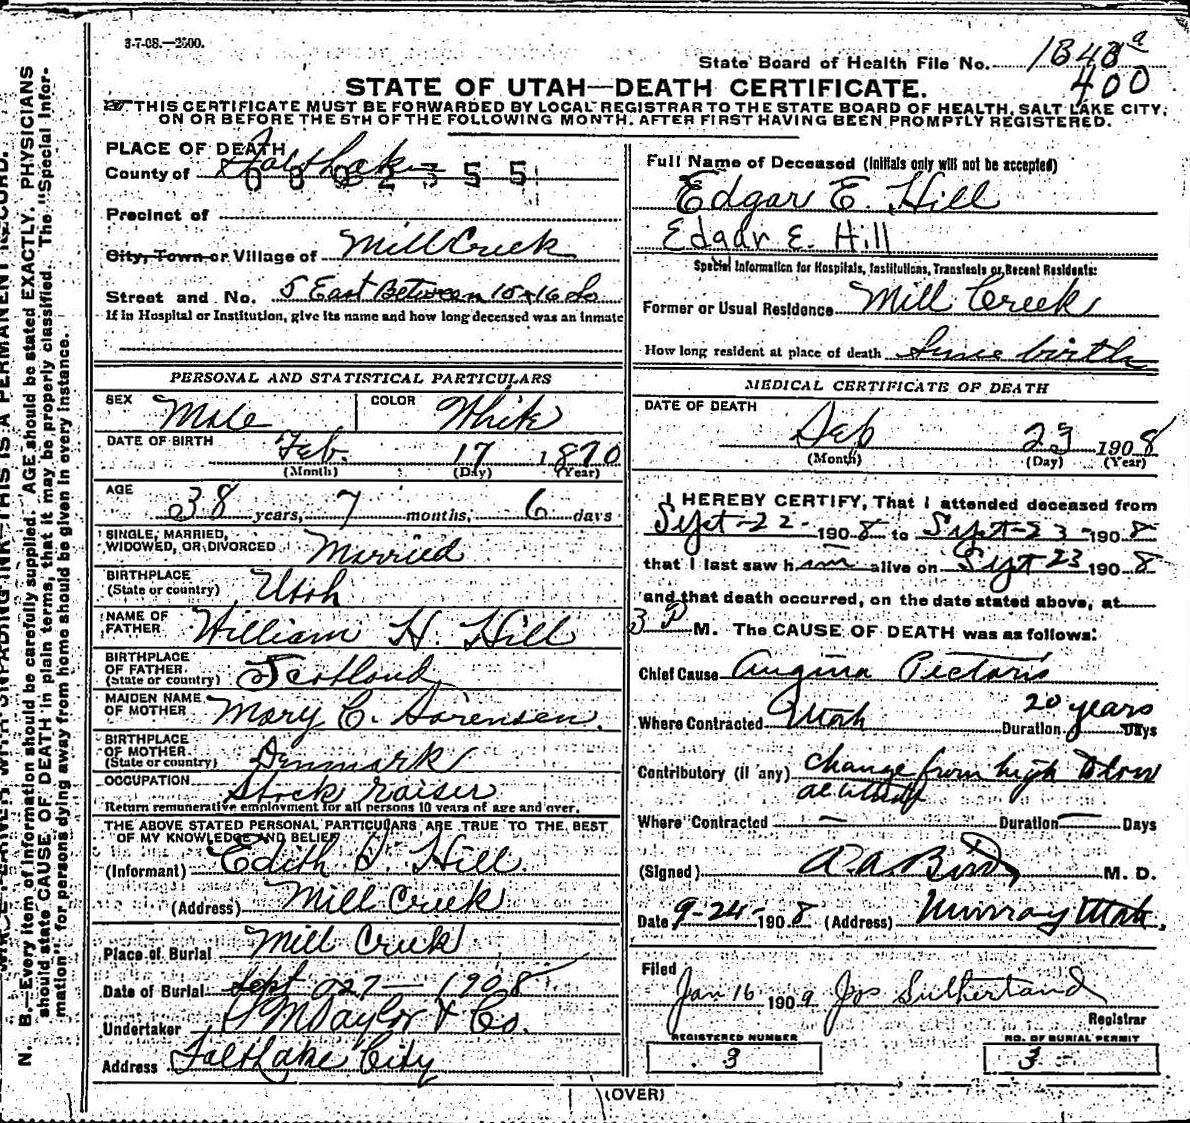 3-7-08.—2500.
State Board of Health File No. 1848a
400
STATE OF UTAH—DEATH CERTIFICATE.
THIS CERTIFICATE MUST BE FORWARDED BY LOCAL REGISTRAR TO THE STATE BOARD OF HEALTH, SALT LAKE CITY,
ON OR BEFORE THE 5TH OF THE FOLLOWING MONTH. AFTER FIRST HAVING BEEN PROMPTLY REGISTERED.
PLACE OF DEATH
County of Salt Lake
0802355
Precinct of
City, Town or Village of Mill Creek
Street and No. 5 East Between 15 & 16 So
If in Hospital or Institution, give its name and how long deceased was an inmate
PERSONAL AND STATISTICAL PARTICULARS
SEX Male COLOR White
DATE OF BIRTH Feb. 17 1870
(Month) (Day) (Year)
AGE 38 years, 7 months, 6 days
SINGLE, MARRIED,
WIDOWED, OR DIVORCED Married
BIRTHPLACE
(State or country) Utah
NAME OF
FATHER William H. Hill
BIRTHPLACE
OF FATHER
(State or country) Scotland
MAIDEN NAME
OF MOTHER Mary C. Sorensen.
BIRTHPLACE
OF MOTHER
(State or country) Denmark
OCCUPATION Stock raiser
Return remunerative employment for all persons 10 years of age and over.
THE ABOVE STATED PERSONAL PARTICULARS ARE TRUE TO THE BEST
OF MY KNOWLEDGE AND BELIEF
(Informant) Edith S. Hill.
(Address) Mill Creek
Place of Burial Mill Creek
Date of Burial Sept 27 — 1908
Undertaker S M Taylor & Co.
Address Salt Lake City
Full Name of Deceased (Initials only will not be accepted)
Edgar E. Hill
Edgar E. Hill
Special Information for Hospitals, Institutions, Transients or Recent Residents:
Former or Usual Residence Mill Creek
How long resident at place of death Since birth
MEDICAL CERTIFICATE OF DEATH
DATE OF DEATH
Sep 23 1908
(Month) (Day) (Year)
I HEREBY CERTIFY, That I attended deceased from
Sept-22- 1908 to Sept-23-1908
that I last saw him alive on Sept 23 1908
and that death occurred, on the date stated above, at
3 P M. The CAUSE OF DEATH was as follows:
Chief Cause Angina Pectoris
Where Contracted Utah Duration 20 years Days
Contributory (if any) change from high to low
altitude
Where Contracted — Duration — Days
(Signed) A. A. Bird M. D.
Date 9-24-1908 (Address) Murray Utah.
Filed
Jan 16 1909 Jos Sutherland
Registrar
REGISTERED NUMBER
3
NO. OF BURIAL PERMIT
3
(OVER)
N. B.—Every item of information should be carefully supplied. AGE should be stated EXACTLY. PHYSICIANS
should state CAUSE OF DEATH in plain terms, that it may be properly classified. The "Special Infor-
mation" for persons dying away from home should be given in every instance.